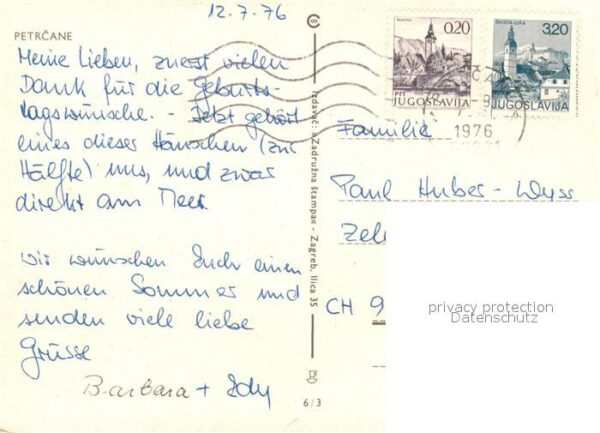 12.7.76
PETRČANE
Meine Lieben, zuerst vielen
Dank für die Geburts-
tagswünsche. - Jetzt gehört
eines dieser Häuschen (zur
Hälfte) uns, und zwar
direkt am Meer.
Wir wünschen Euch einen
schönen Sommer und
senden viele liebe
Grüsse
Barbara + Edy
Izdavač: »Zadružna štampa« - Zagreb, Ilica 35
6/3
0,20
PTT
JUGOSLAVIJA
ŠKOFJA LOKA
3,20
JUGOSLAVIJA
1976
Familie
Paul Huber-Wyss
Zel
CH 9
privacy protection
Datenschutz